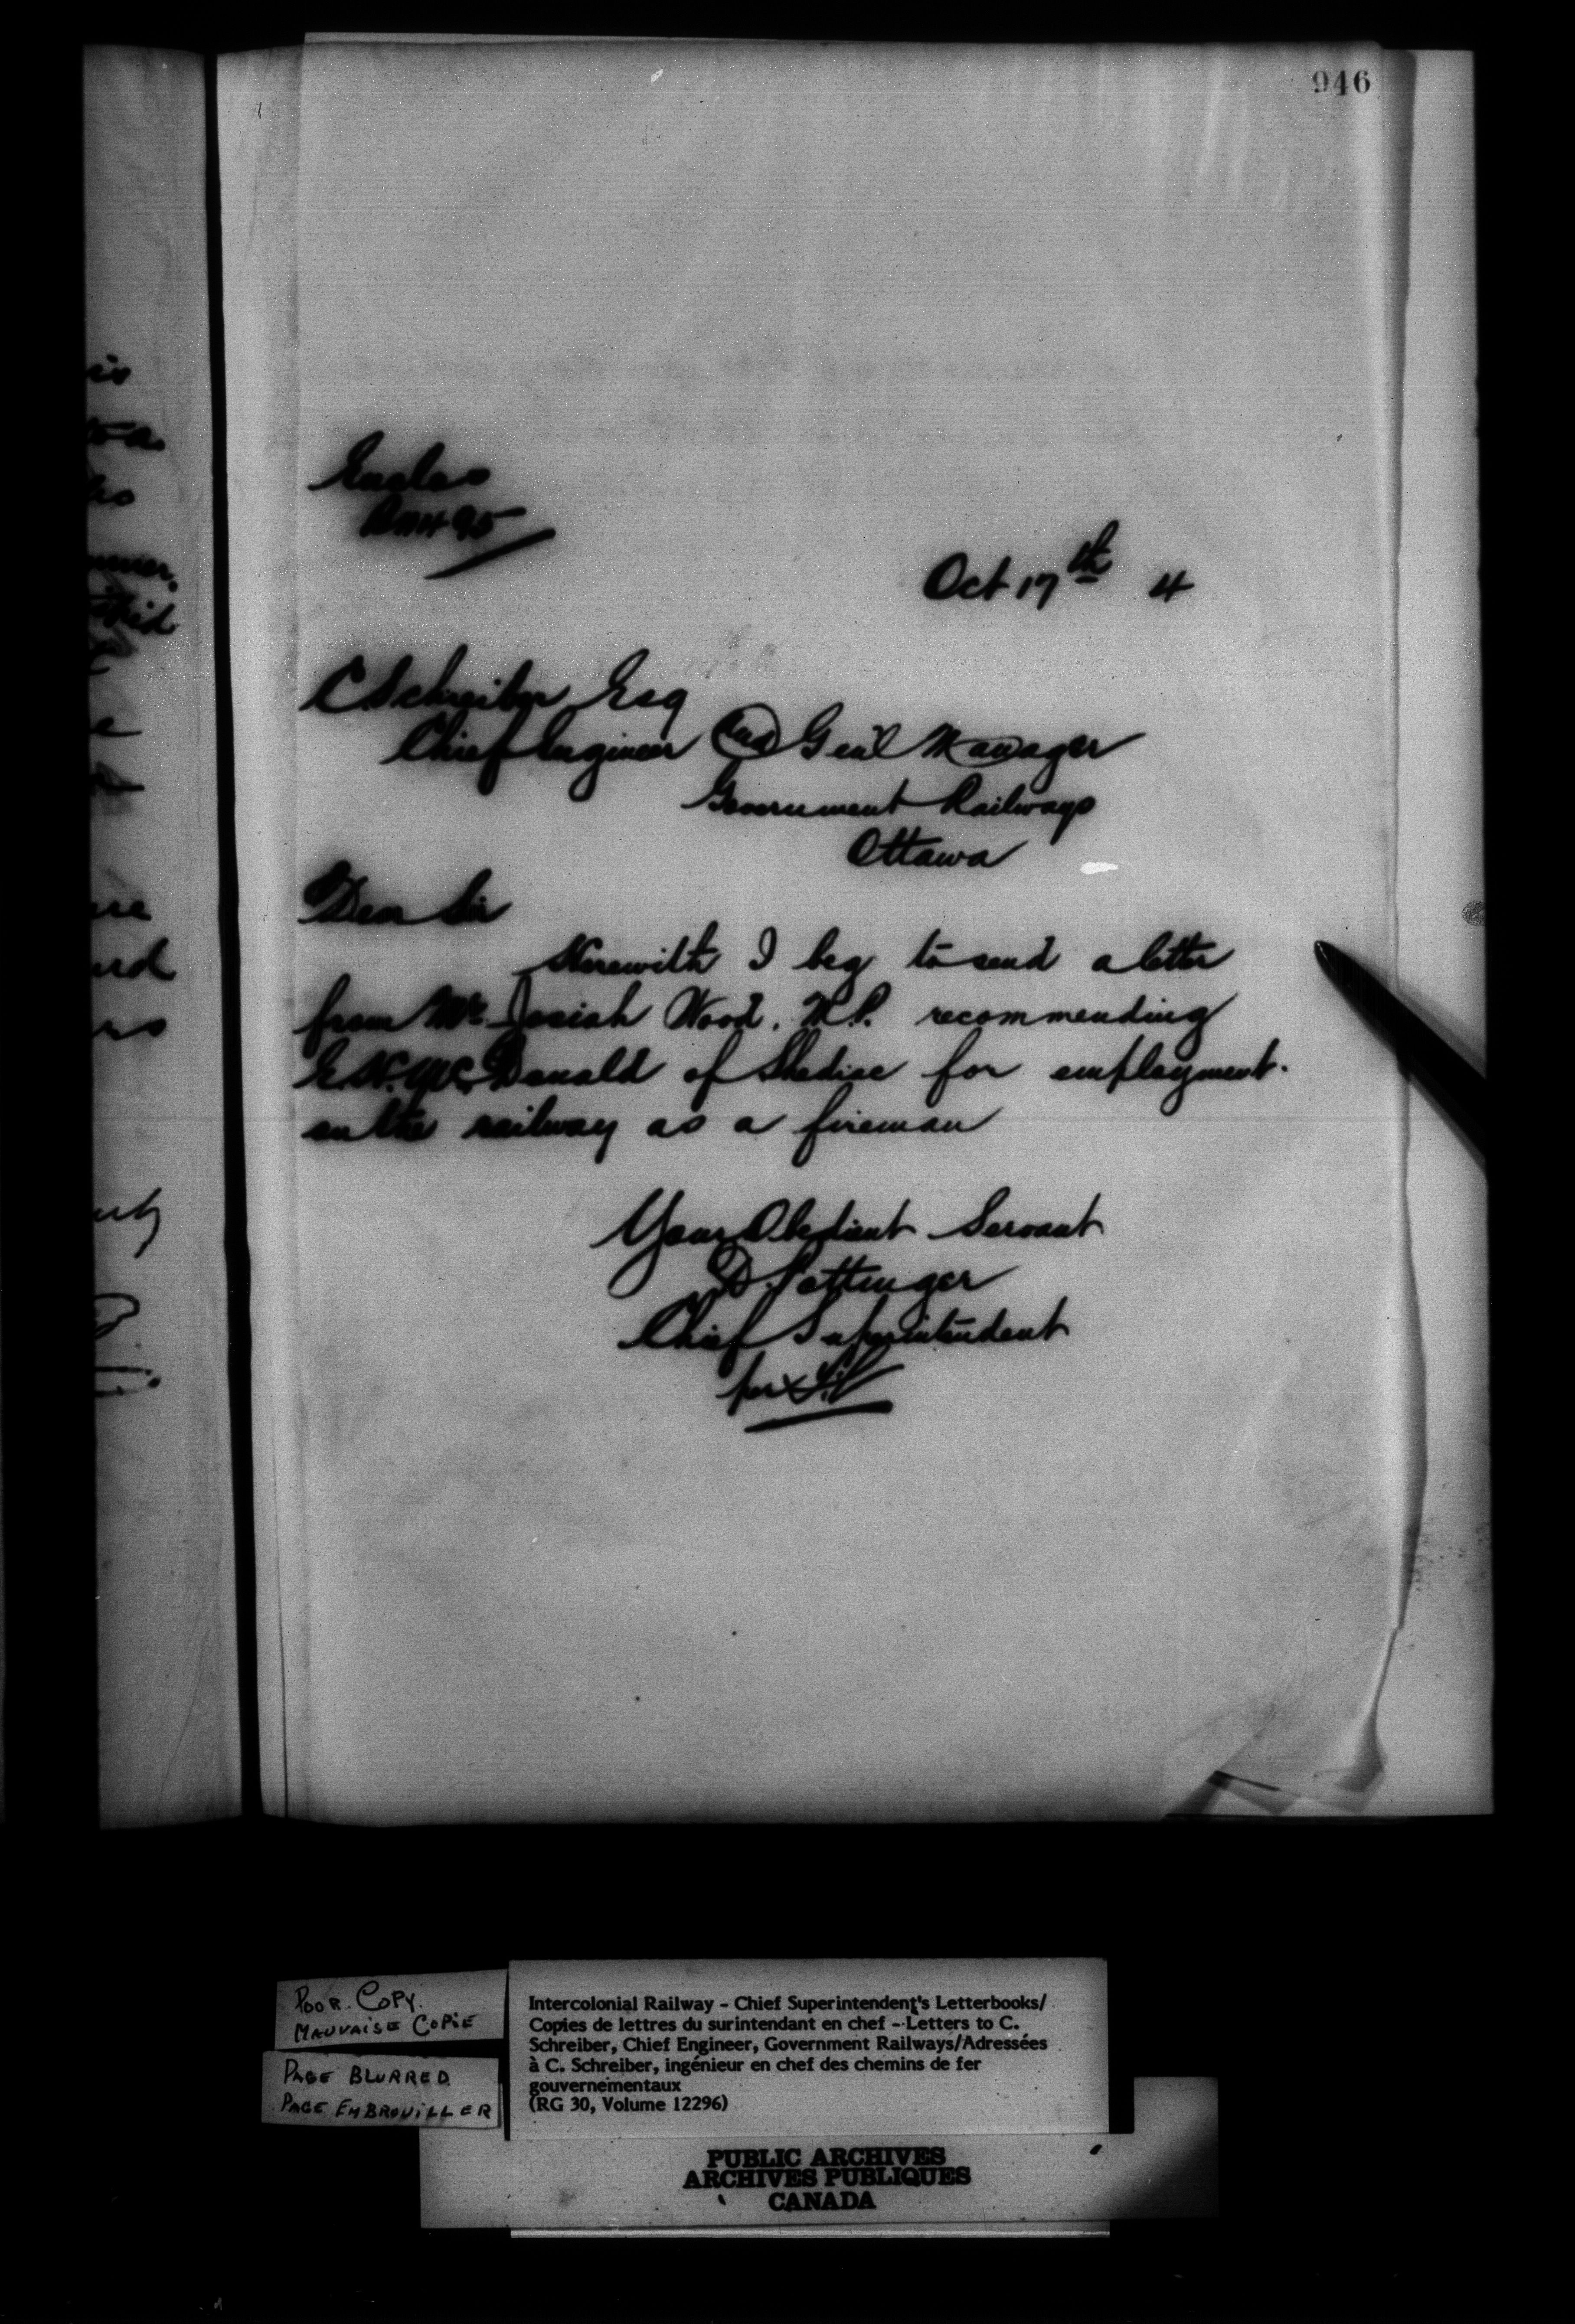 946
Enclos
Oct 17th 4
C Schreiber Esq
Chief Engineer and Gen'l Manager
Government Railways
Ottawa
Dear Sir
Herewith I beg to send a letter
from Mr. Josiah Wood, M.P. recommending
McDonald of Shediac for employment.
on the railway as a fireman
Your Obedient Servant
D. Pottinger
Chief Superintendent
per
POOR. COPY.
MAUVAISE COPIE
PAGE BLURRED
PAGE EMBROUILLER
Intercolonial Railway - Chief Superintendent's Letterbooks/
Copies de lettres du surintendant en chef - Letters to C.
Schreiber, Chief Engineer, Government Railways/Adressées
à C. Schreiber, ingénieur en chef des chemins de fer
gouvernementaux
(RG 30, Volume 12296)
PUBLIC ARCHIVES
ARCHIVES PUBLIQUES
CANADA